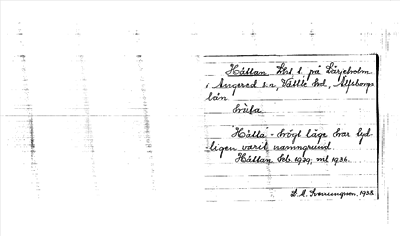 Håttan Lht. t. på Lärjeholm
i Angered s:n, Vättle hd., Älfsborgs
län.
hùta.
"Håtta" - högt läge har tyd-
ligen varit namngrund.
Håttan beb. 1929, ml 1936.
D. A. Sverungson. 1938